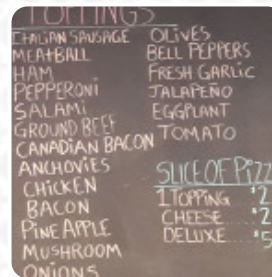 TOPPINGS
ITALIAN SAUSAGE
MEATBALL
HAM
PEPPERONI
SALAMI
GROUND BEEF
CANADIAN BACON
ANCHOVIES
CHICKEN
BACON
PINEAPPLE
MUSHROOM
ONIONS
OLIVES
BELL PEPPERS
FRESH GARLIC
JALAPEÑO
EGGPLANT
TOMATO
SLICE OF PIZZ
1 TOPPING $2
CHEESE $2
DELUXE $5